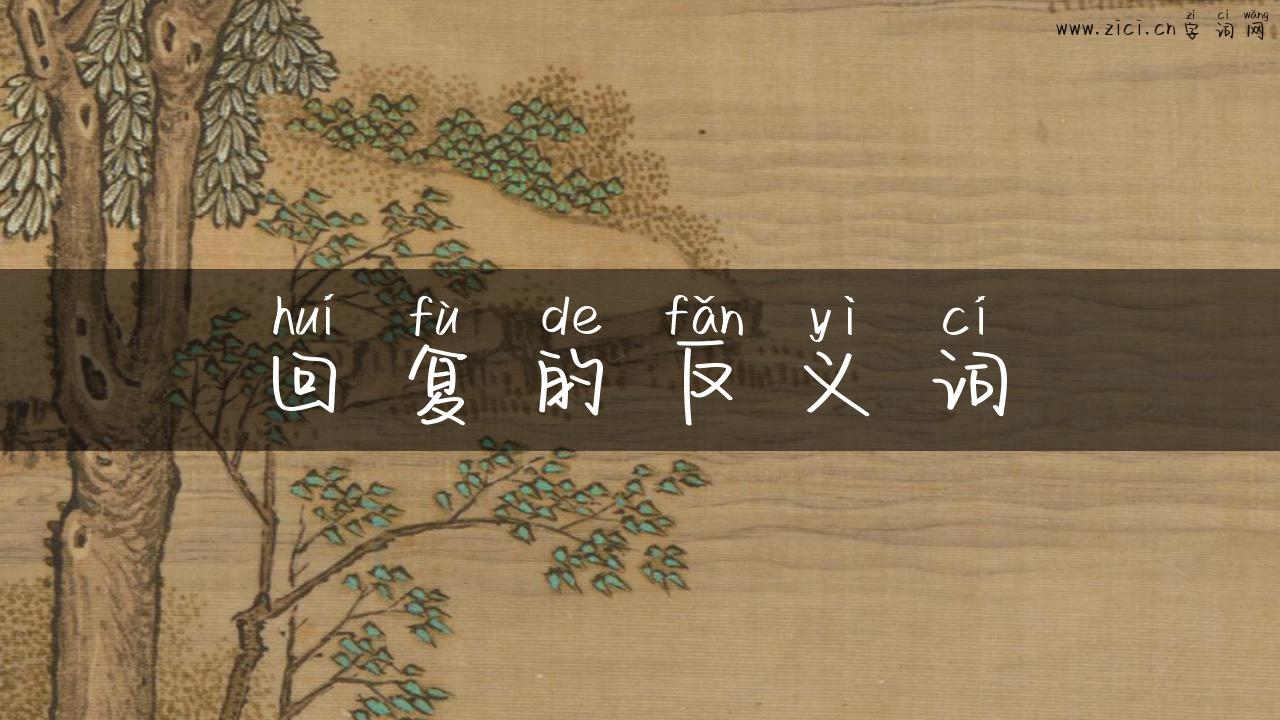 zì cí wǎng
www.zici.cn字词网
huí fù de fǎn yì cí
回复的反义词